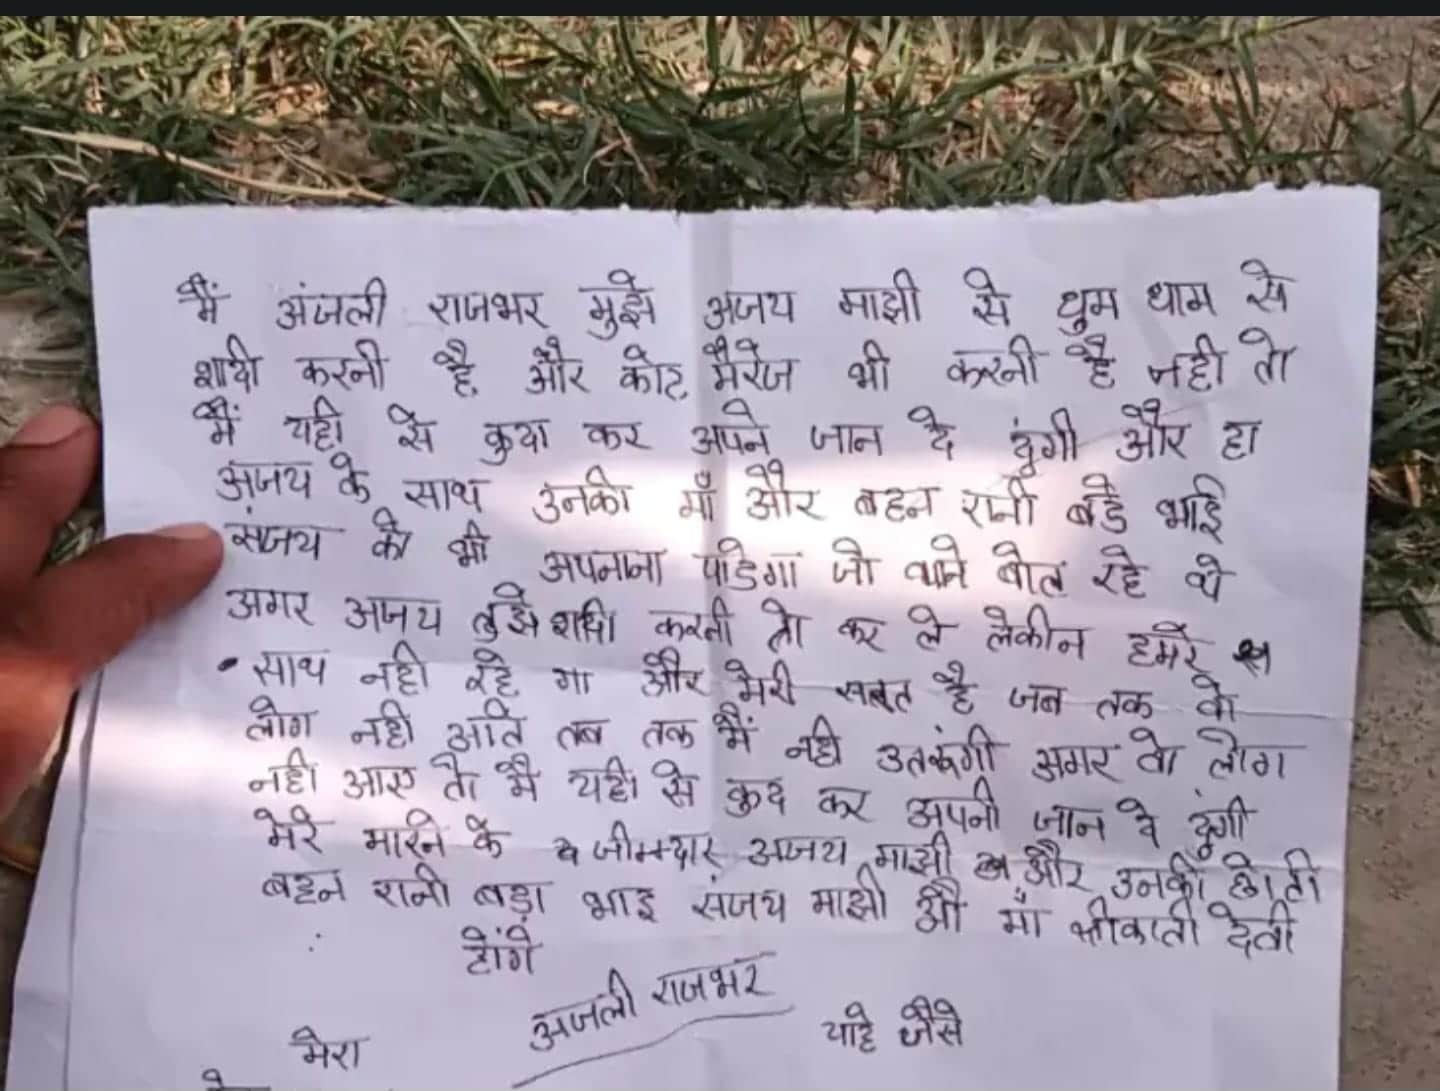 मैं अंजली राजभर मुझे अजय माझी से धुम धाम से
शादी करनी है, और कोट मैरेज भी करनी है नही तो
मैं यही से कुदा कर अपने जान दे दूंगी और हा
अजय के साथ उनकी माँ और बहन रानी बडे भाई
संजय को भी अपनाना पाडेगा जो थाने बोल रहे थे
अगर अजय तुझे शादी करनी तो कर ले लेकीन हमरे
साथ नही रहे गा और मेरी सबूत है जब तक वो
लोग नही आते तब तक मैं नही उतरूंगी अगर वो लोग
नही आए तो मै यही से कुद कर अपनी जान दे दूंगी
मेरे मारने के जीम्दार अजय माझी और उनकी छोती
बहन रानी बड़ा भाइ संजय माझी औ माँ देवी
होंगे
अंजली राजभर
मेरा चाहे जैसे